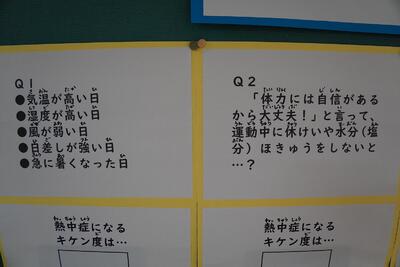 Q1
●気温が高い日
●湿度が高い日
●風が弱い日
●日差しが強い日
●急に暑くなった日
熱中症になる
キケン度は…
Q2
「体力には自信がある
から大丈夫！」と言って、
運動中に休けいや水分(塩
分)ほきゅうをしないと
…？
熱中症になる
キケン度は…